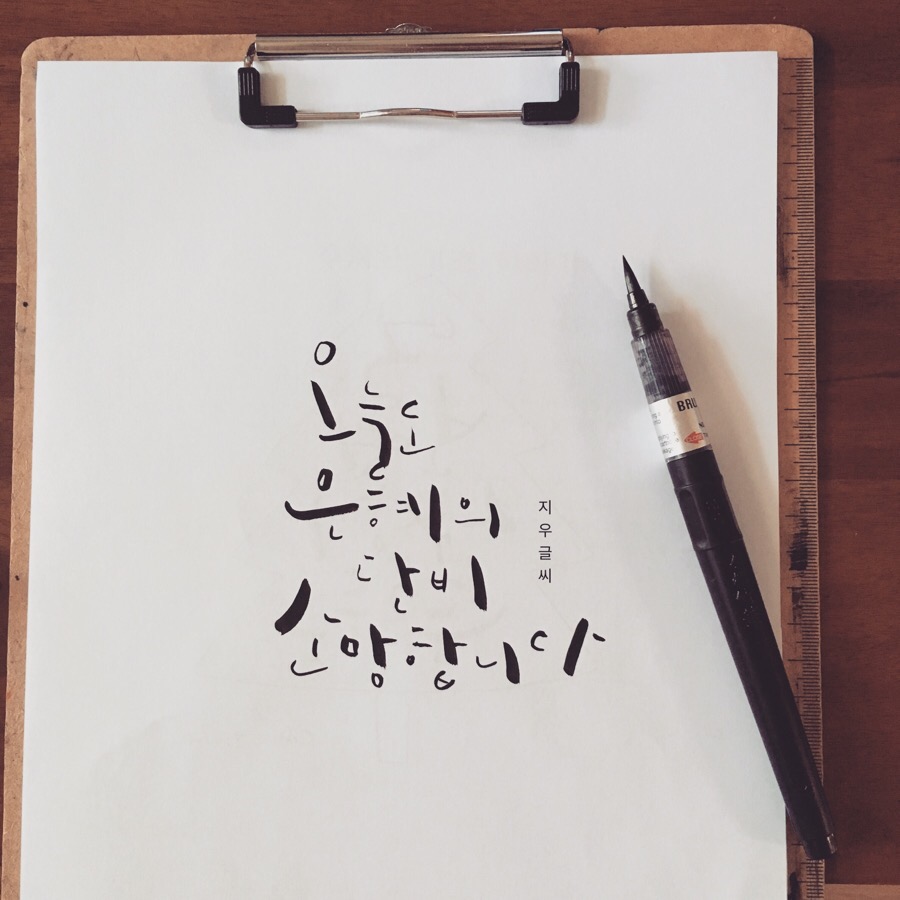 오늘도
은혜의
단비
소망합니다
지우글씨
BRU